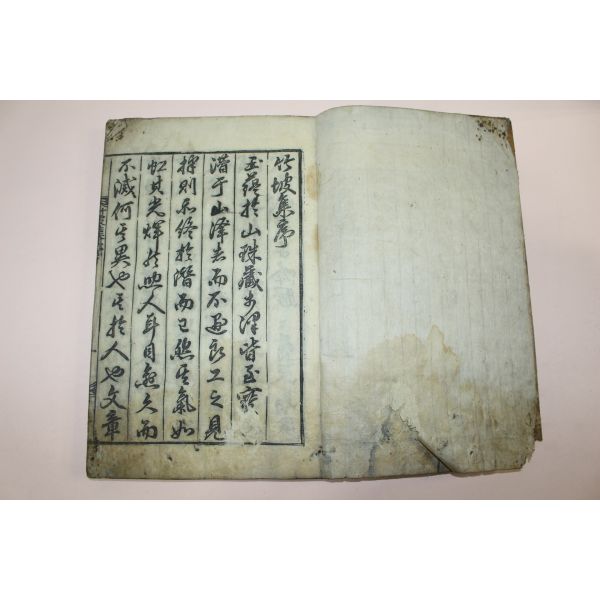 竹坡集序
玉蘊於山珠藏於澤皆至寶
潛于山澤者而不遇良工之見
擇則亦終於潛而已然其氣如
虹其光輝於照人耳目無久而
不滅何其異也其於人也文章